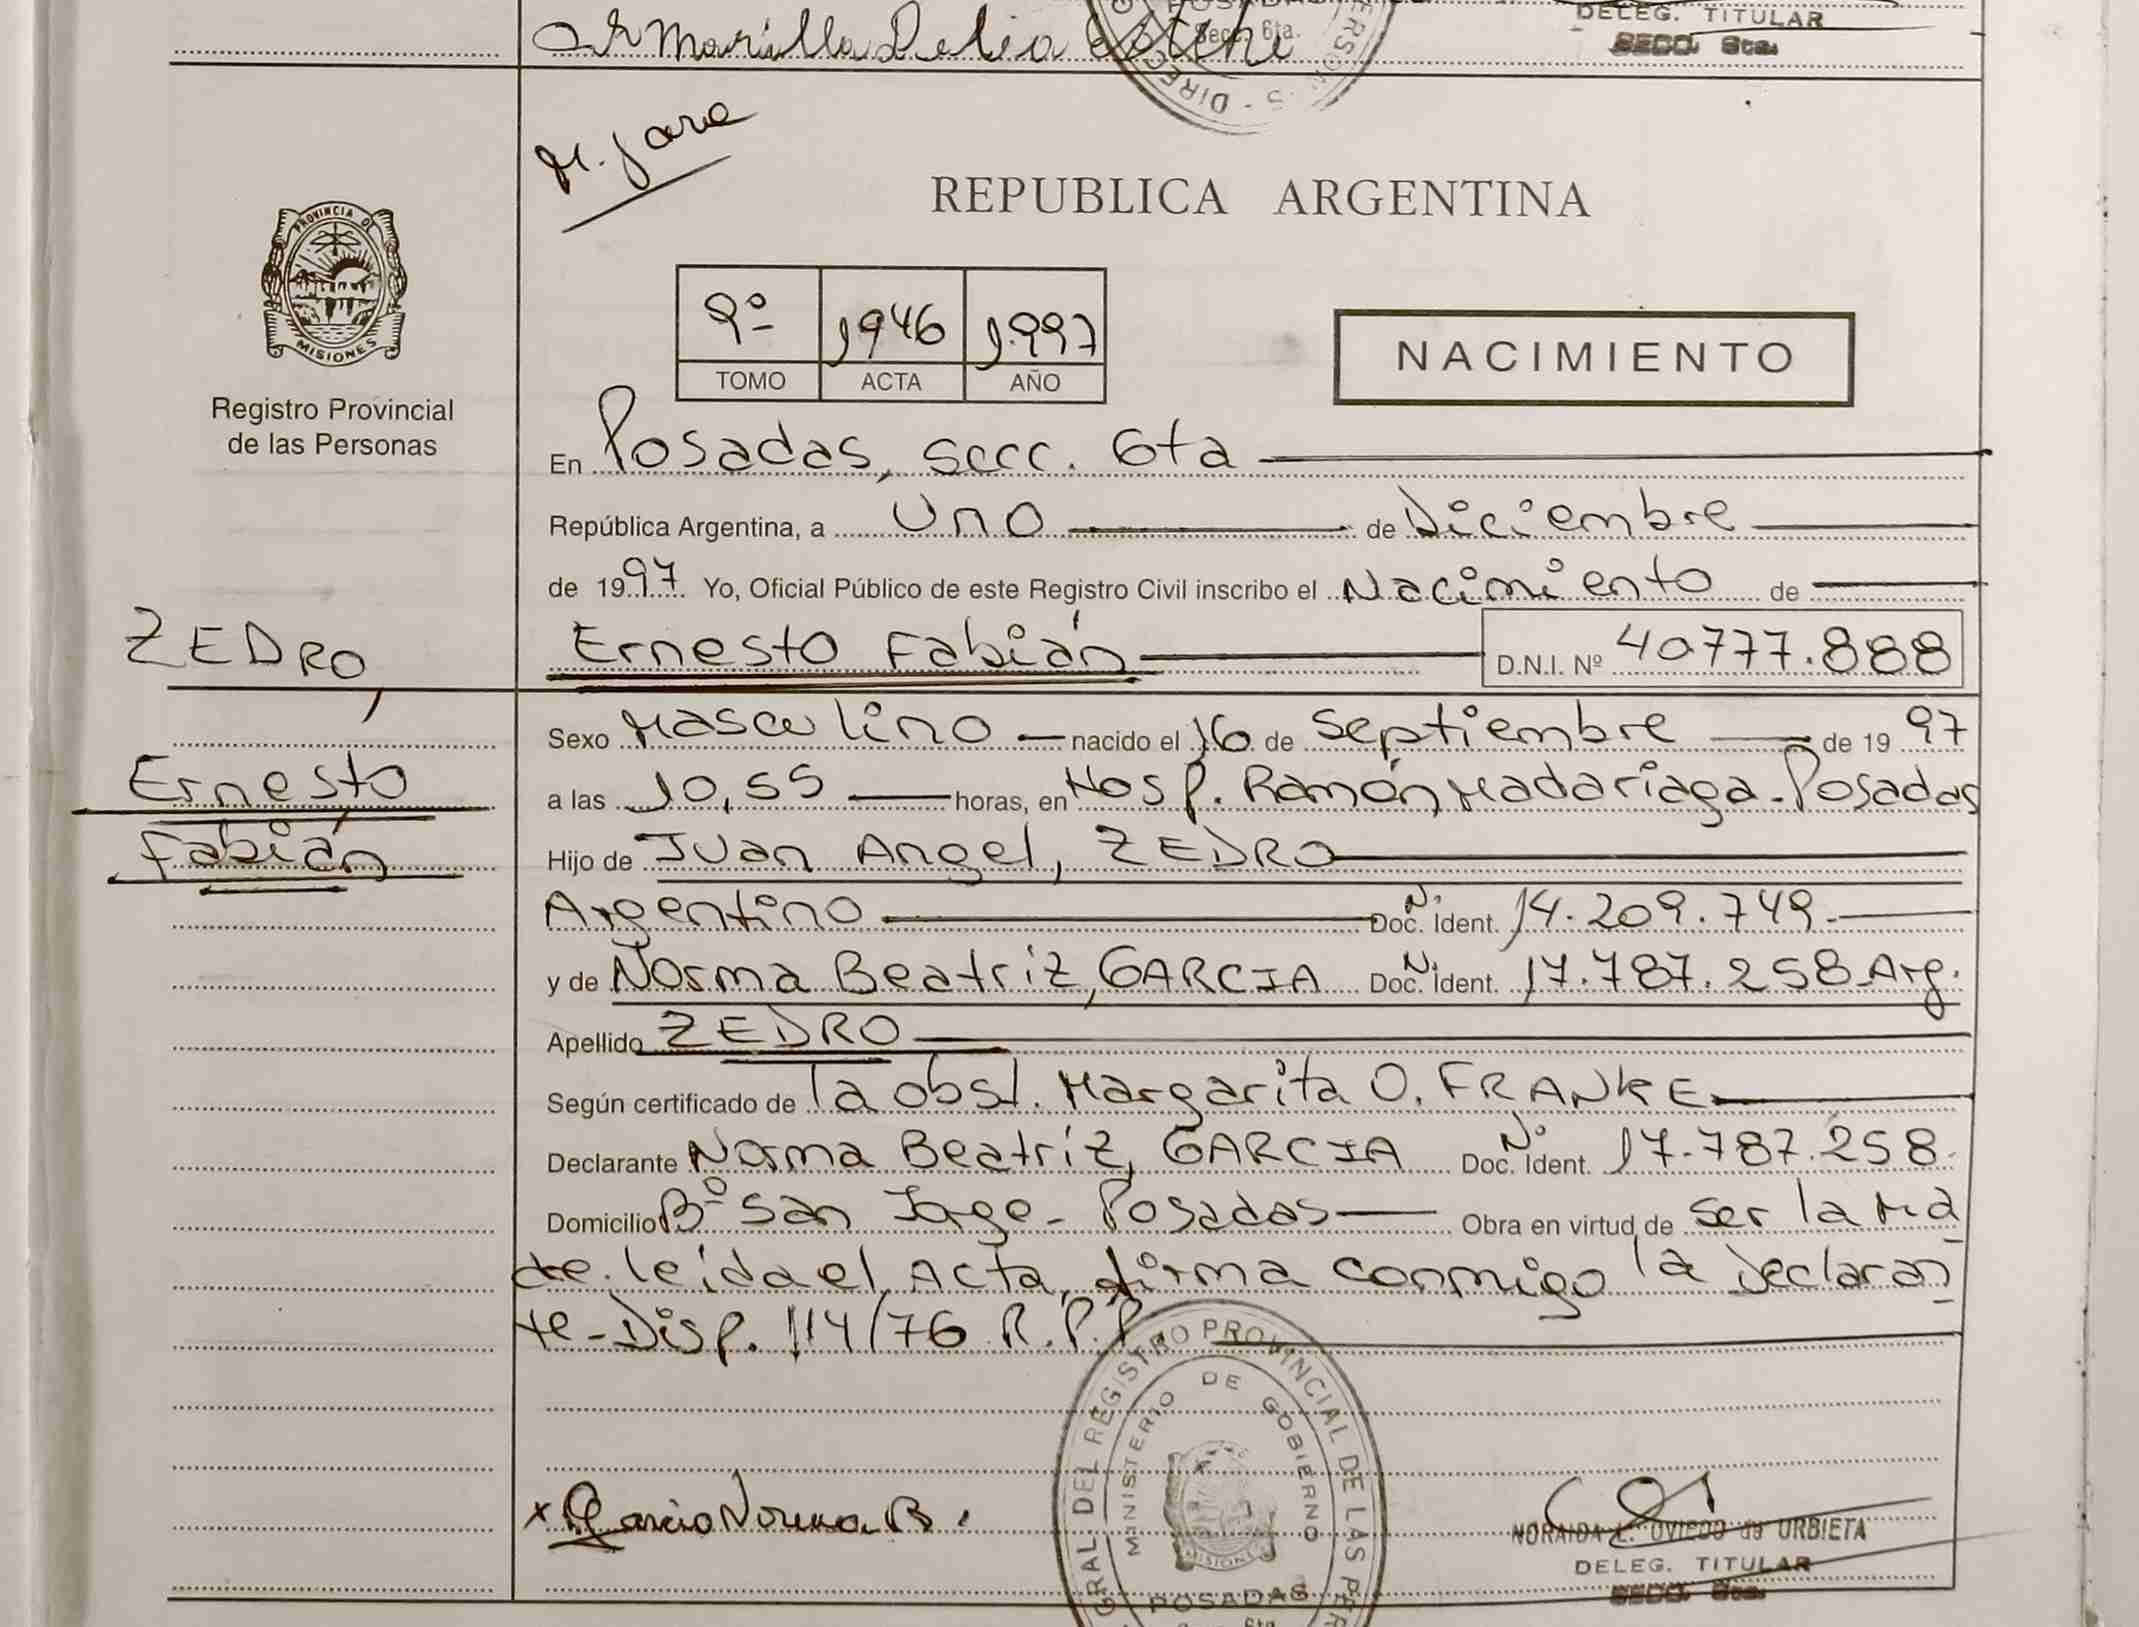 Marilla Delia
DELEG. TITULAR
SECC. 6ta.
Secc. 6ta.
DIREC
M. Jara
REPUBLICA ARGENTINA
PROVINCIA DE
MISIONES
Registro Provincial
de las Personas
9º 1946 1.997
TOMO ACTA AÑO
NACIMIENTO
En Posadas, secc. 6ta
República Argentina, a Uno de Diciembre
de 1997 Yo, Oficial Público de este Registro Civil inscribo el Nacimiento de
ZEDRO,
Ernesto
Fabián
Ernesto Fabián D.N.I. Nº 40777.888
Sexo Masculino nacido el 16 de septiembre de 1997
a las 10,55 horas, en Hosp. Ramón Madariaga - Posadas
Hijo de Juan Angel, ZEDRO
Argentino Doc. N. Ident. 14.209.749.
y de Norma Beatriz, GARCIA Doc. N. Ident. 17.787.258 Arg.
Apellido ZEDRO
Según certificado de la obst. Margarita O. FRANKE
Declarante Norma Beatriz, GARCIA Doc. Nº Ident. 17.787.258.
Domicilio Bº San Jorge - Posadas Obra en virtud de ser la Ma
dre. leída el Acta, firma conmigo la declaran
te - Disp. 114/76 R.P.P.
x Garcia Norma B.
GRAL. DEL REGISTRO PROVINCIAL DE LAS PER
MINISTERIO DE GOBIERNO
MISIONES
POSADAS
6ta
NORAIDA L. OVIEDO de URBIETA
DELEG. TITULAR
SECC. 6ta.